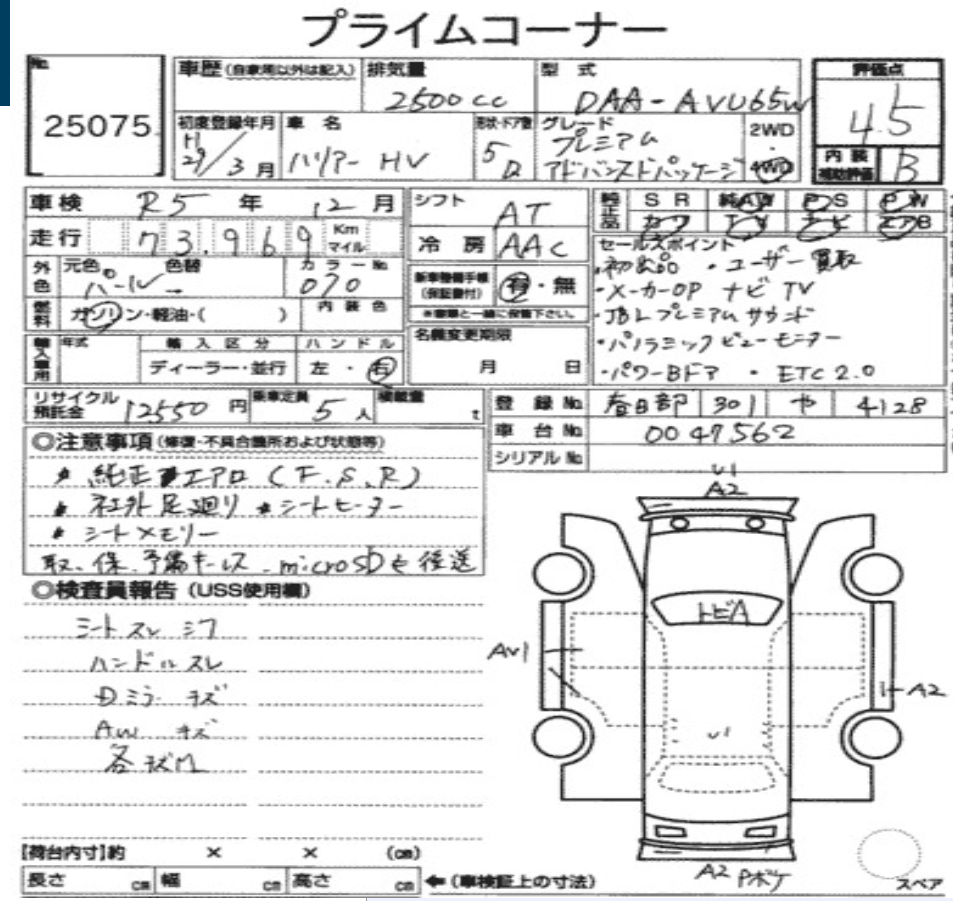 プライムコーナー
No. 25075
車歴 (自家用以外は記入)
排気量 2500cc
型式 DAA-AVU65W
評価点 4.5
初度登録年月 H29/3月
車名 ハリアー HV
形状・ドア数 5D
グレード プレミアム アドバンスドパッケージ
2WD・4WD
内装補助評価 B
車検 R5年 12月
走行 73,969 Km マイル
シフト AT
冷房 AAC
純正品 SR 純AW PS PW
カワ TV ナビ エアB
外色 元色 パール 色替
カラーNo. 070
燃料 ガソリン・軽油・( )
内装色
新車整備手帳 (保証書付) 有・無
※書類と一緒に保管下さい。
セールスポイント
・初出品 ・ユーザー買取
・メーカーOP ナビ TV
・JBLプレミアムサウンド
・パノラミックビューモニター
・パワーBドア ・ETC2.0
輸入車用 年式 輸入区分 ハンドル
ディーラー・並行 左・右
名義変更期限 月 日
リサイクル預託金 12550円
乗車定員 5人
積載量 t
登録No. 春日部 301 や 4128
車台No. 0047562
シリアルNo.
◎注意事項 (修復・不具合箇所および状態等)
* 純正エアロ (F.S.R)
* 社外足廻り * シートヒーター
* シートメモリー
取、保、予備キーレス、microSDを後送
◎検査員報告 (USS使用欄)
シートスレ シワ
ハンドルスレ
Dミラーキズ
AW キズ
各キズ凹
U1
A2
トビA
AU1
A2
U1
A2 Pボケ
スペア
【荷台内寸】約 × × (cm)
長さ cm 幅 cm 高さ cm ←(車検証上の寸法)